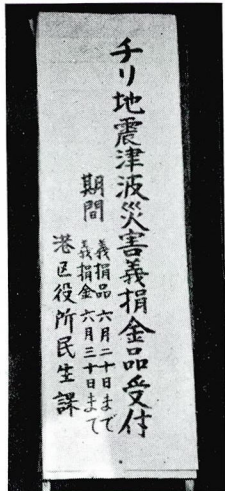 チリ地震津波災害義捐金品受付
期間
義捐品 六月二十日まで
義捐金 六月三十日まで
港区役所民生課